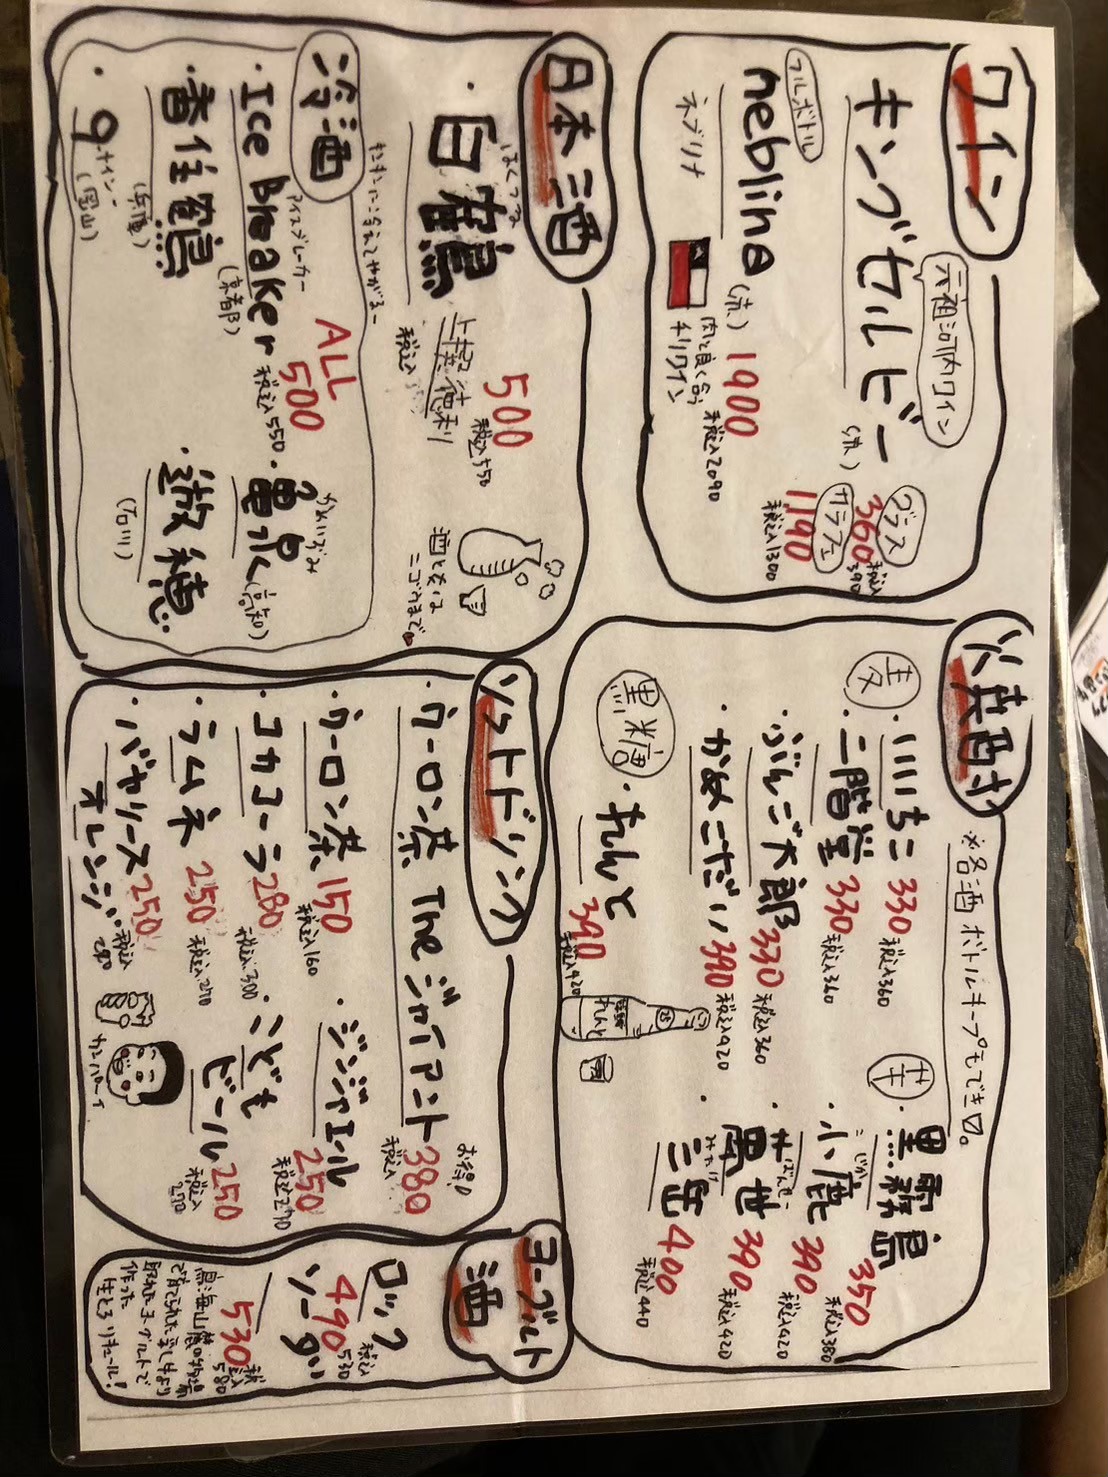 ワイン
キングセルビー
元祖河内ワイン
(赤)
グラス
360 税込390
カラフェ
1,190
税込1300
フルボトル
Neblina
ネブリナ
(赤)
1900
税込2090
肉と良く合う
チリワイン
焼酎
※各酒ボトルキープもできマス。
麦
・いいちこ 330 税込360
・二階堂 330 税込360
・ぶんご太郎 330 税込360
・かめこだい 390 税込420
黒糖
・れんと 390 税込420
芋
・黒霧島 350 税込380
・小鹿 390 税込420
こじか
・萬世 390 税込420
ばんせ
・三岳 400 税込440
みたけ
日本酒
・白鶴
はくつる
500
税込550
上撰徳利
税込
酒と女は
2ごうまで
冷酒
キンキンに冷えてやがるー
ALL
500
税込550
・Ice Breaker
アイスブレーカー
(京都)
・香住鶴
(兵庫)
・9
ナイン
(岡山)
・亀泉
かめいずみ
(高知)
(石川)
ソフトドリンク
・ウーロン茶 The ジャイアント 380
お得!
税込
・ウーロン茶 150 税込160
・コカコーラ 280 税込300
・ラムネ 250 税込270
・バヤリースオレンジ 250 税込
・ジンジャエール 250 税込270
・こどもビール 250 税込270
カンパーイ
ヨーグルト酒
ロック
490 税込530
ソーダ割
530 税込580
鳥海山麓の牧場
で育てられた乳牛より
取れたヨーグルトで
作った
生とろリキュール!
れんと